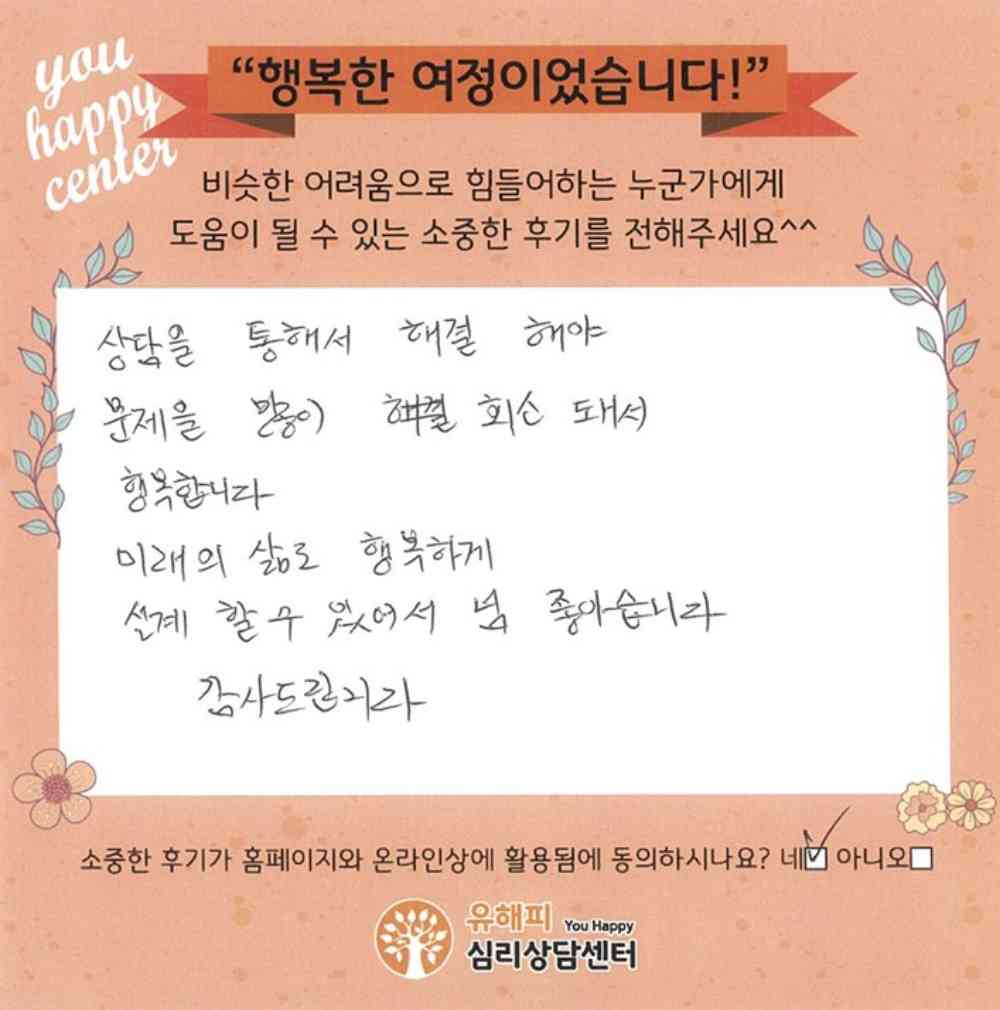 you
happy
center
“행복한 여정이었습니다!”
비슷한 어려움으로 힘들어하는 누군가에게
도움이 될 수 있는 소중한 후기를 전해주세요^^
상담을 통해서 해결 해야
문제을 많이 회신 돼서
행복합니다
미래의 삶로 행복하게
설계 할 수 있어서 넘 좋아습니다
감사드린니다
소중한 후기가 홈페이지와 온라인상에 활용됨에 동의하시나요? 네☑ 아니오☐
유해피 You Happy
심리상담센터